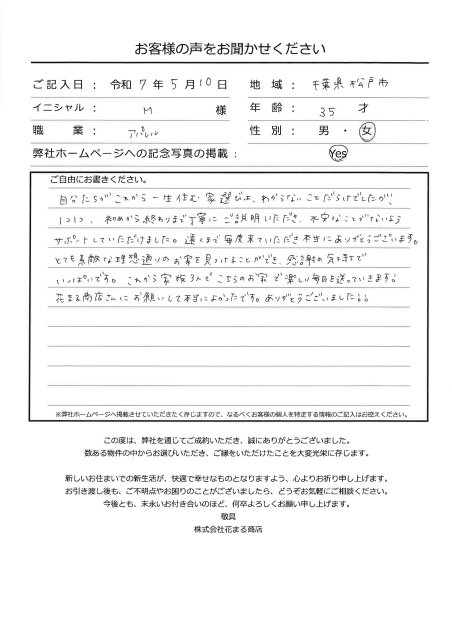 お客様の声をお聞かせください
ご記入日： 令和 7 年 5 月 10 日 地 域： 千葉県 松戸市
イニシャル： M 様 年 齢： 35 才
職 業： アパレル 性 別： 男 ・ 女
弊社ホームページへの記念写真の掲載： Yes
ご自由にお書きください。
自分たちがこれから一生住む家選びは、わからないことだらけでしたが、
1つ1つ、初めから終わりまで丁寧にご説明いただき、不安なことがないよう
サポートしていただけました。遠くまで毎度来ていただき本当にありがとうございます。
とても素敵な理想通りのお家を見つけることができ、感謝の気持ちで
いっぱいです。これから家族3人でこちらのお家で楽しい毎日を送っていきます!
花まる商店さんにお願いして本当によかったです。ありがとうございました!!
※弊社ホームページへ掲載させていただきたく存じますので、なるべくお客様の個人を特定する情報のご記入はお控えください。
この度は、弊社を通じてご成約いただき、誠にありがとうございました。
数ある物件の中からお選びいただき、ご縁をいただけたことを大変光栄に存じます。
新しいお住まいでの新生活が、快適で幸せなものとなりますよう、心よりお祈り申し上げます。
お引き渡し後も、ご不明点やお困りのことがございましたら、どうぞお気軽にご相談ください。
今後とも、末永いお付き合いのほど、何卒よろしくお願い申し上げます。
敬具
株式会社花まる商店